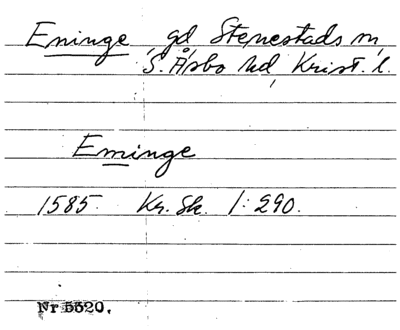 Eninge, gd, Stenestads sn,
S. Åsbo hd, Krist. l.
Eminge
1585 Kr. Sk. 1: 290.
Nr 5520.